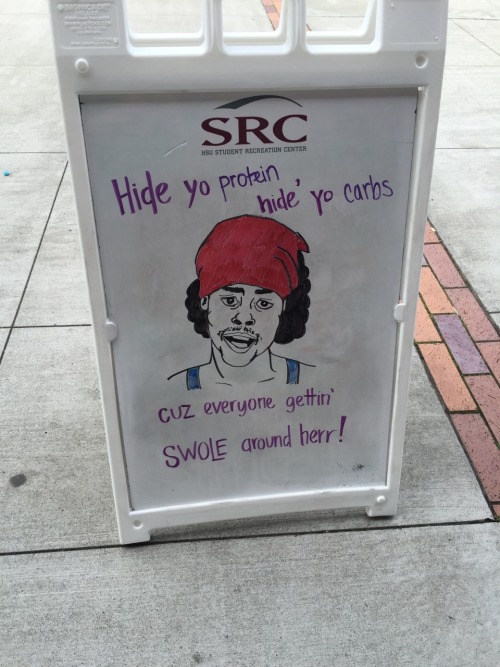 SRC
HSU STUDENT RECREATION CENTER
Hide yo protein
hide' yo carbs
cuz everyone gettin'
SWOLE around herr!